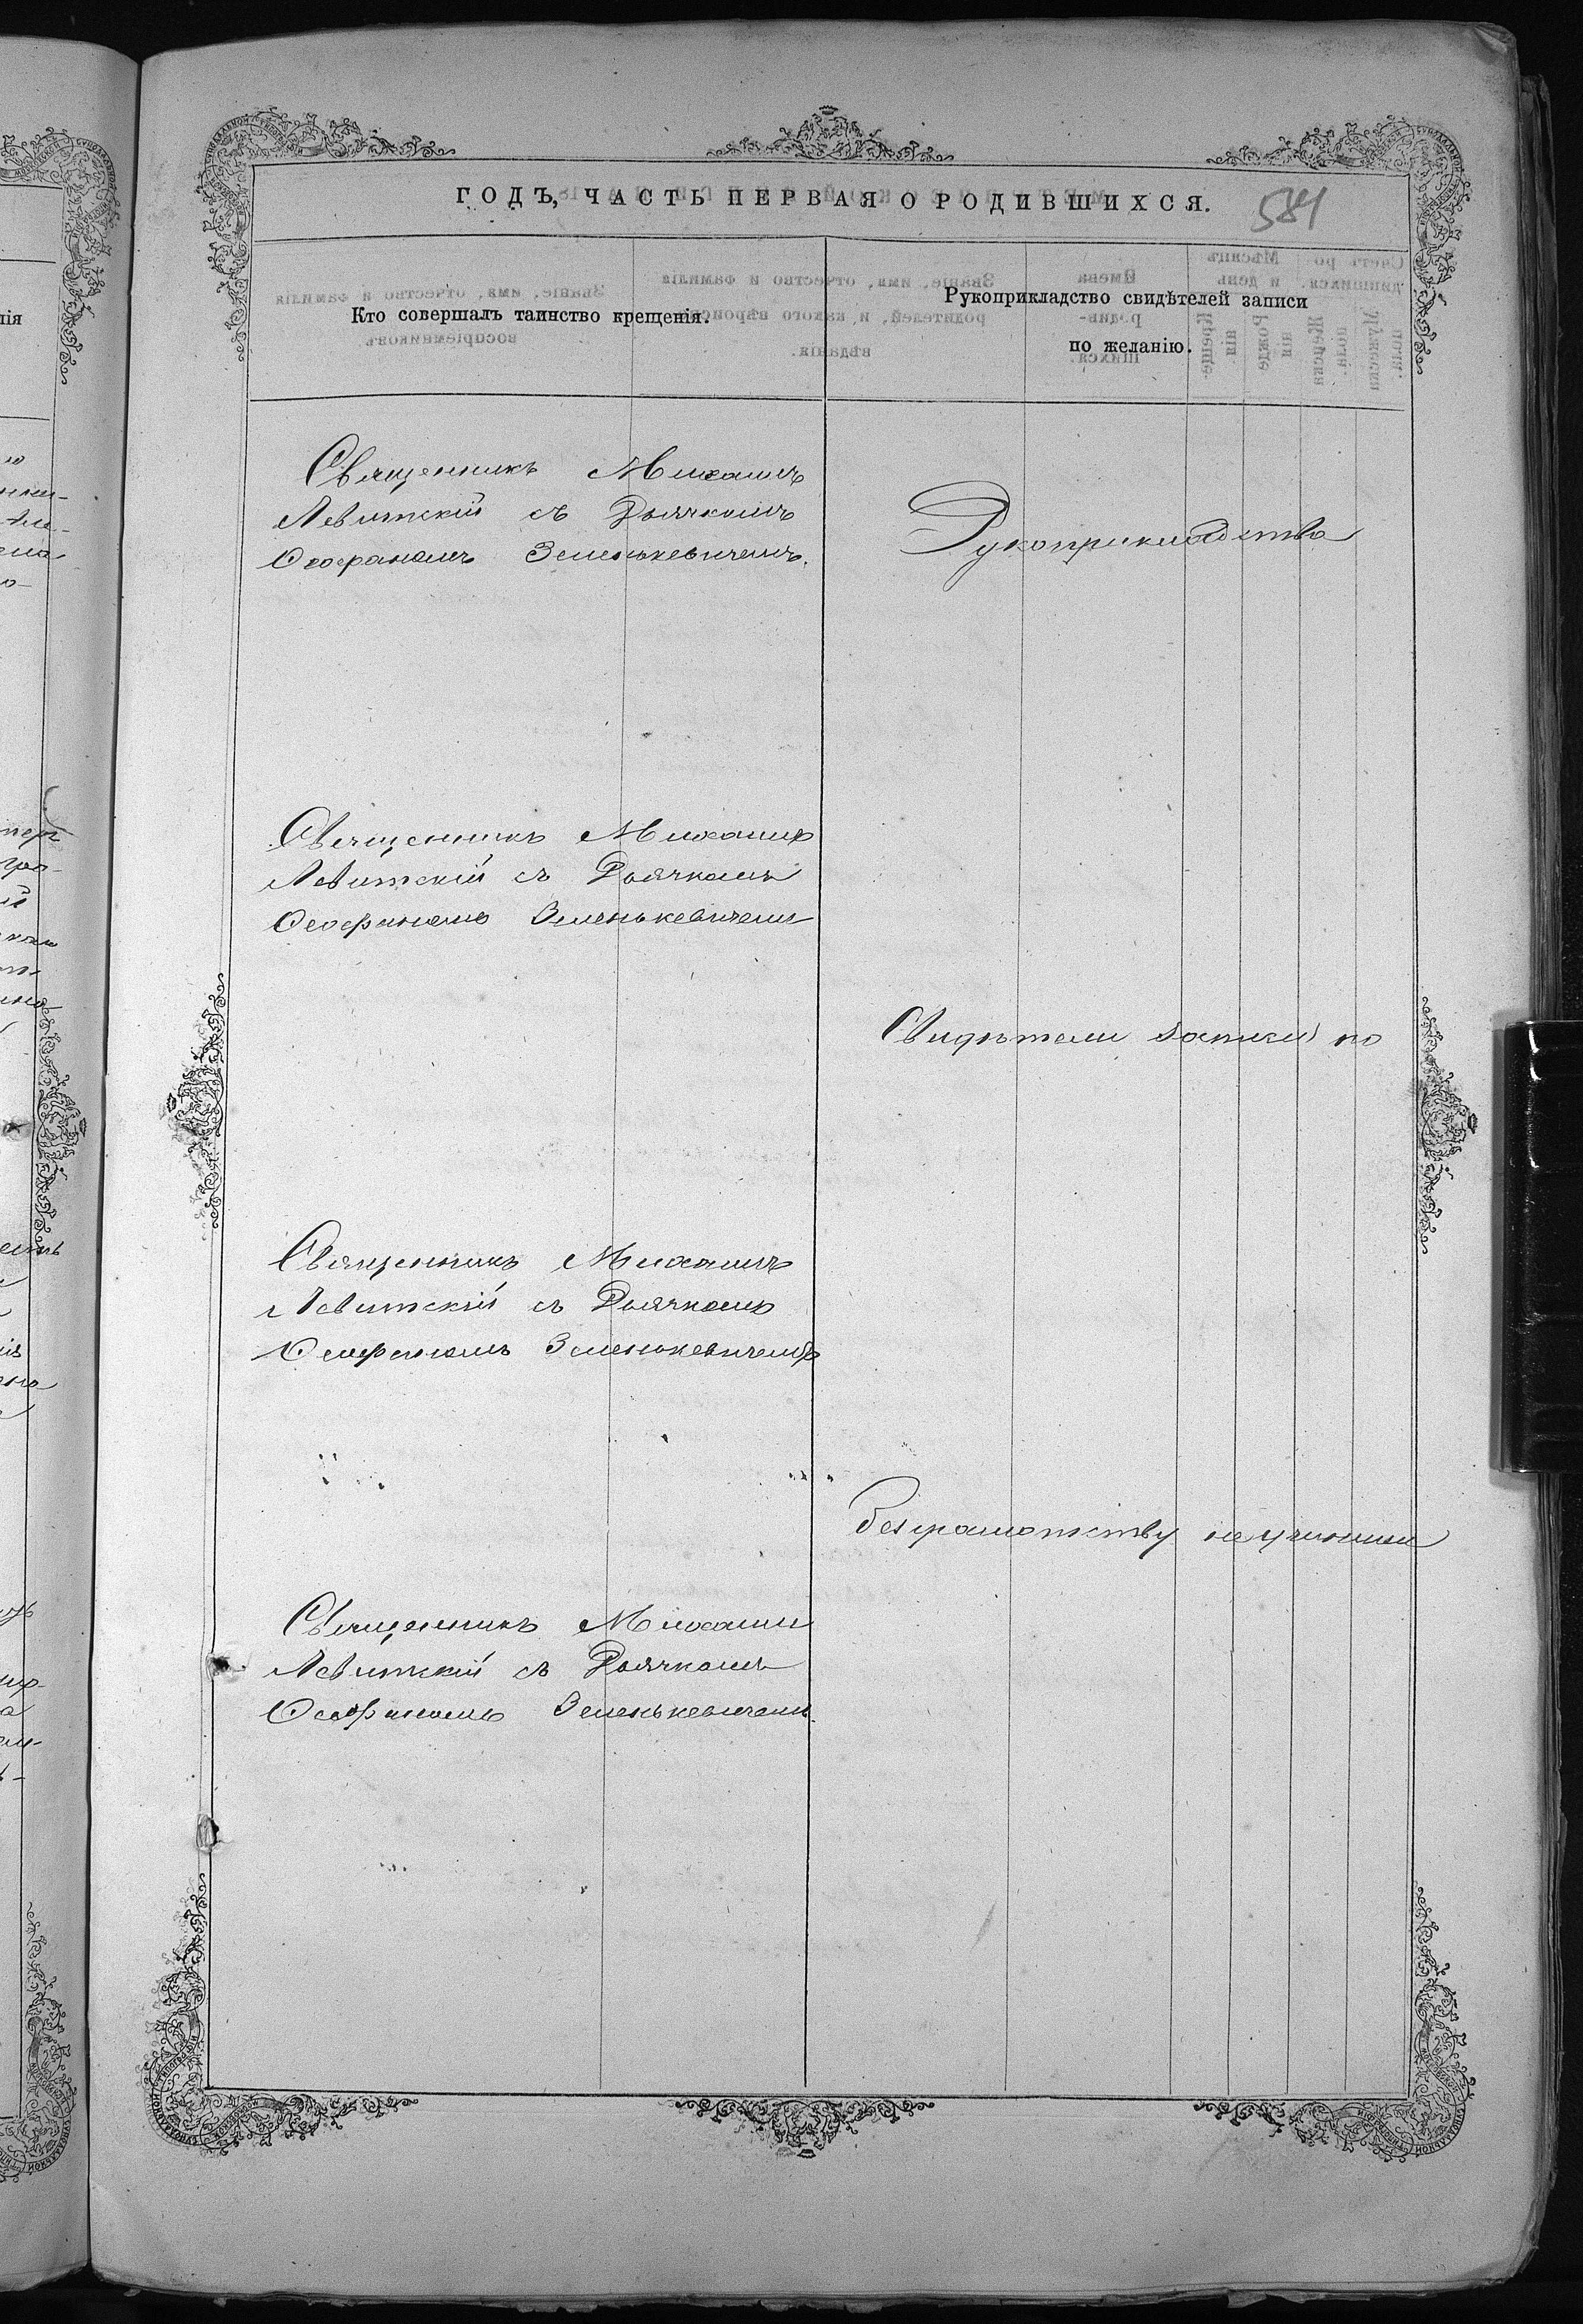 ГОДЪ, ЧАСТЬ ПЕРВАЯ О РОДИВШИХСЯ.
584
Кто совершалъ таинство крещенія.
Рукоприкладство свидѣтелей записи
по желанію.
Священникъ Михаилъ
Левитскій съ Дьячкомъ
Ѳеофаномъ Зеленькевичемъ.
Рукоприкладства
Священникъ Михаилъ
Левитскій съ Дьячкомъ
Ѳеофаномъ Зеленькевичемъ
Свидѣтели записи по
Священникъ Михаилъ
Левитскій съ Дьячкомъ
Ѳеофаномъ Зеленькевичемъ
безграмотству неучинили
Священникъ Михаилъ
Левитскій съ Дьячкомъ
Ѳеофаномъ Зеленькевичемъ